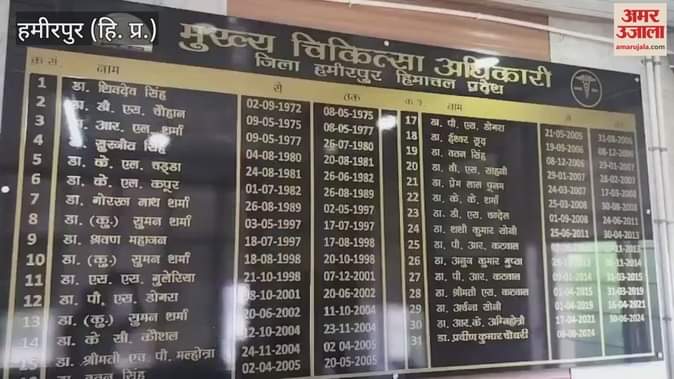 हमीरपुर (हि. प्र.)
अमर उजाला
amarujala.com
मुख्य चिकित्सा अधिकारी
जिला हमीरपुर हिमाचल प्रदेश
क्र.सं. नाम से तक
1 डा. शिवदेव सिंह 02-09-1972 08-05-1975
2 डा. सी. एस. चौहान 09-05-1975 08-05-1977
3 डा. आर. एल. शर्मा 09-05-1977 26-07-1980
4 डा. सुरजीत सिंह 04-08-1980 20-08-1981
5 डा. के. एल. चड्डा 24-08-1981
6 डा. के. एल. कपूर 01-07-1982 26-08-1989
7 डा. गोरख नाथ शर्मा 26-08-1989 02-05-1997
8 डा. (कु.) सुमन शर्मा 03-05-1997 17-07-1997
9 डा. श्रवण महाजन 18-07-1997 17-08-1998
10 डा. (कु.) सुमन शर्मा 18-08-1998 20-10-1998
11 डा. एस. एस. गुलेरिया 21-10-1998 07-12-2001
12 डा. पी. एस. डोगरा 20-06-2002
13 डा. (कु.) सुमन शर्मा 20-06-2002 11-10-2004
14 डा. के. सी. कौशल 12-10-2004 23-11-2004
15 डा. श्रीमती एच. पी. मल्होत्रा 24-11-2004 02-04-2005
डा. वतन सिंह 02-04-2005 20-05-2005
नाम
17 डा. पी. एस. डोगरा 21-05-2005 31-08-2006
18 डा. ईश्वर सूद 19-09-2006
19 डा. वतन सिंह 08-12-2006 29-01-2007
20 डा. वी. एस. साहनी 29-01-2007 28-02-2007
21 डा. प्रेम लाल पूनम 24-03-2007 17-03-2008
22 डा. के. के. शर्मा 24-03-2008
23 डा. डी. एस. चन्देल 01-09-2008 24-06-2011
24 डा. शशी कुमार सोनी 25-06-2011 30-04-2013
25 डा. पी. आर. कटवाल
26 डा. अनुज कुमार गुप्ता
27 डा. पी. आर. कटवाल 31-03-2015
28 डा. श्रीमती एस. कटवाल 01-04-2015 31-03-2019
29 डा. अर्चना सोनी 01-04-2019 16-04-2021
30 डा. आर.के. अग्निहोत्री 17-04-2021 30-06-2024
31 डा. प्रवीण कुमार चौधरी